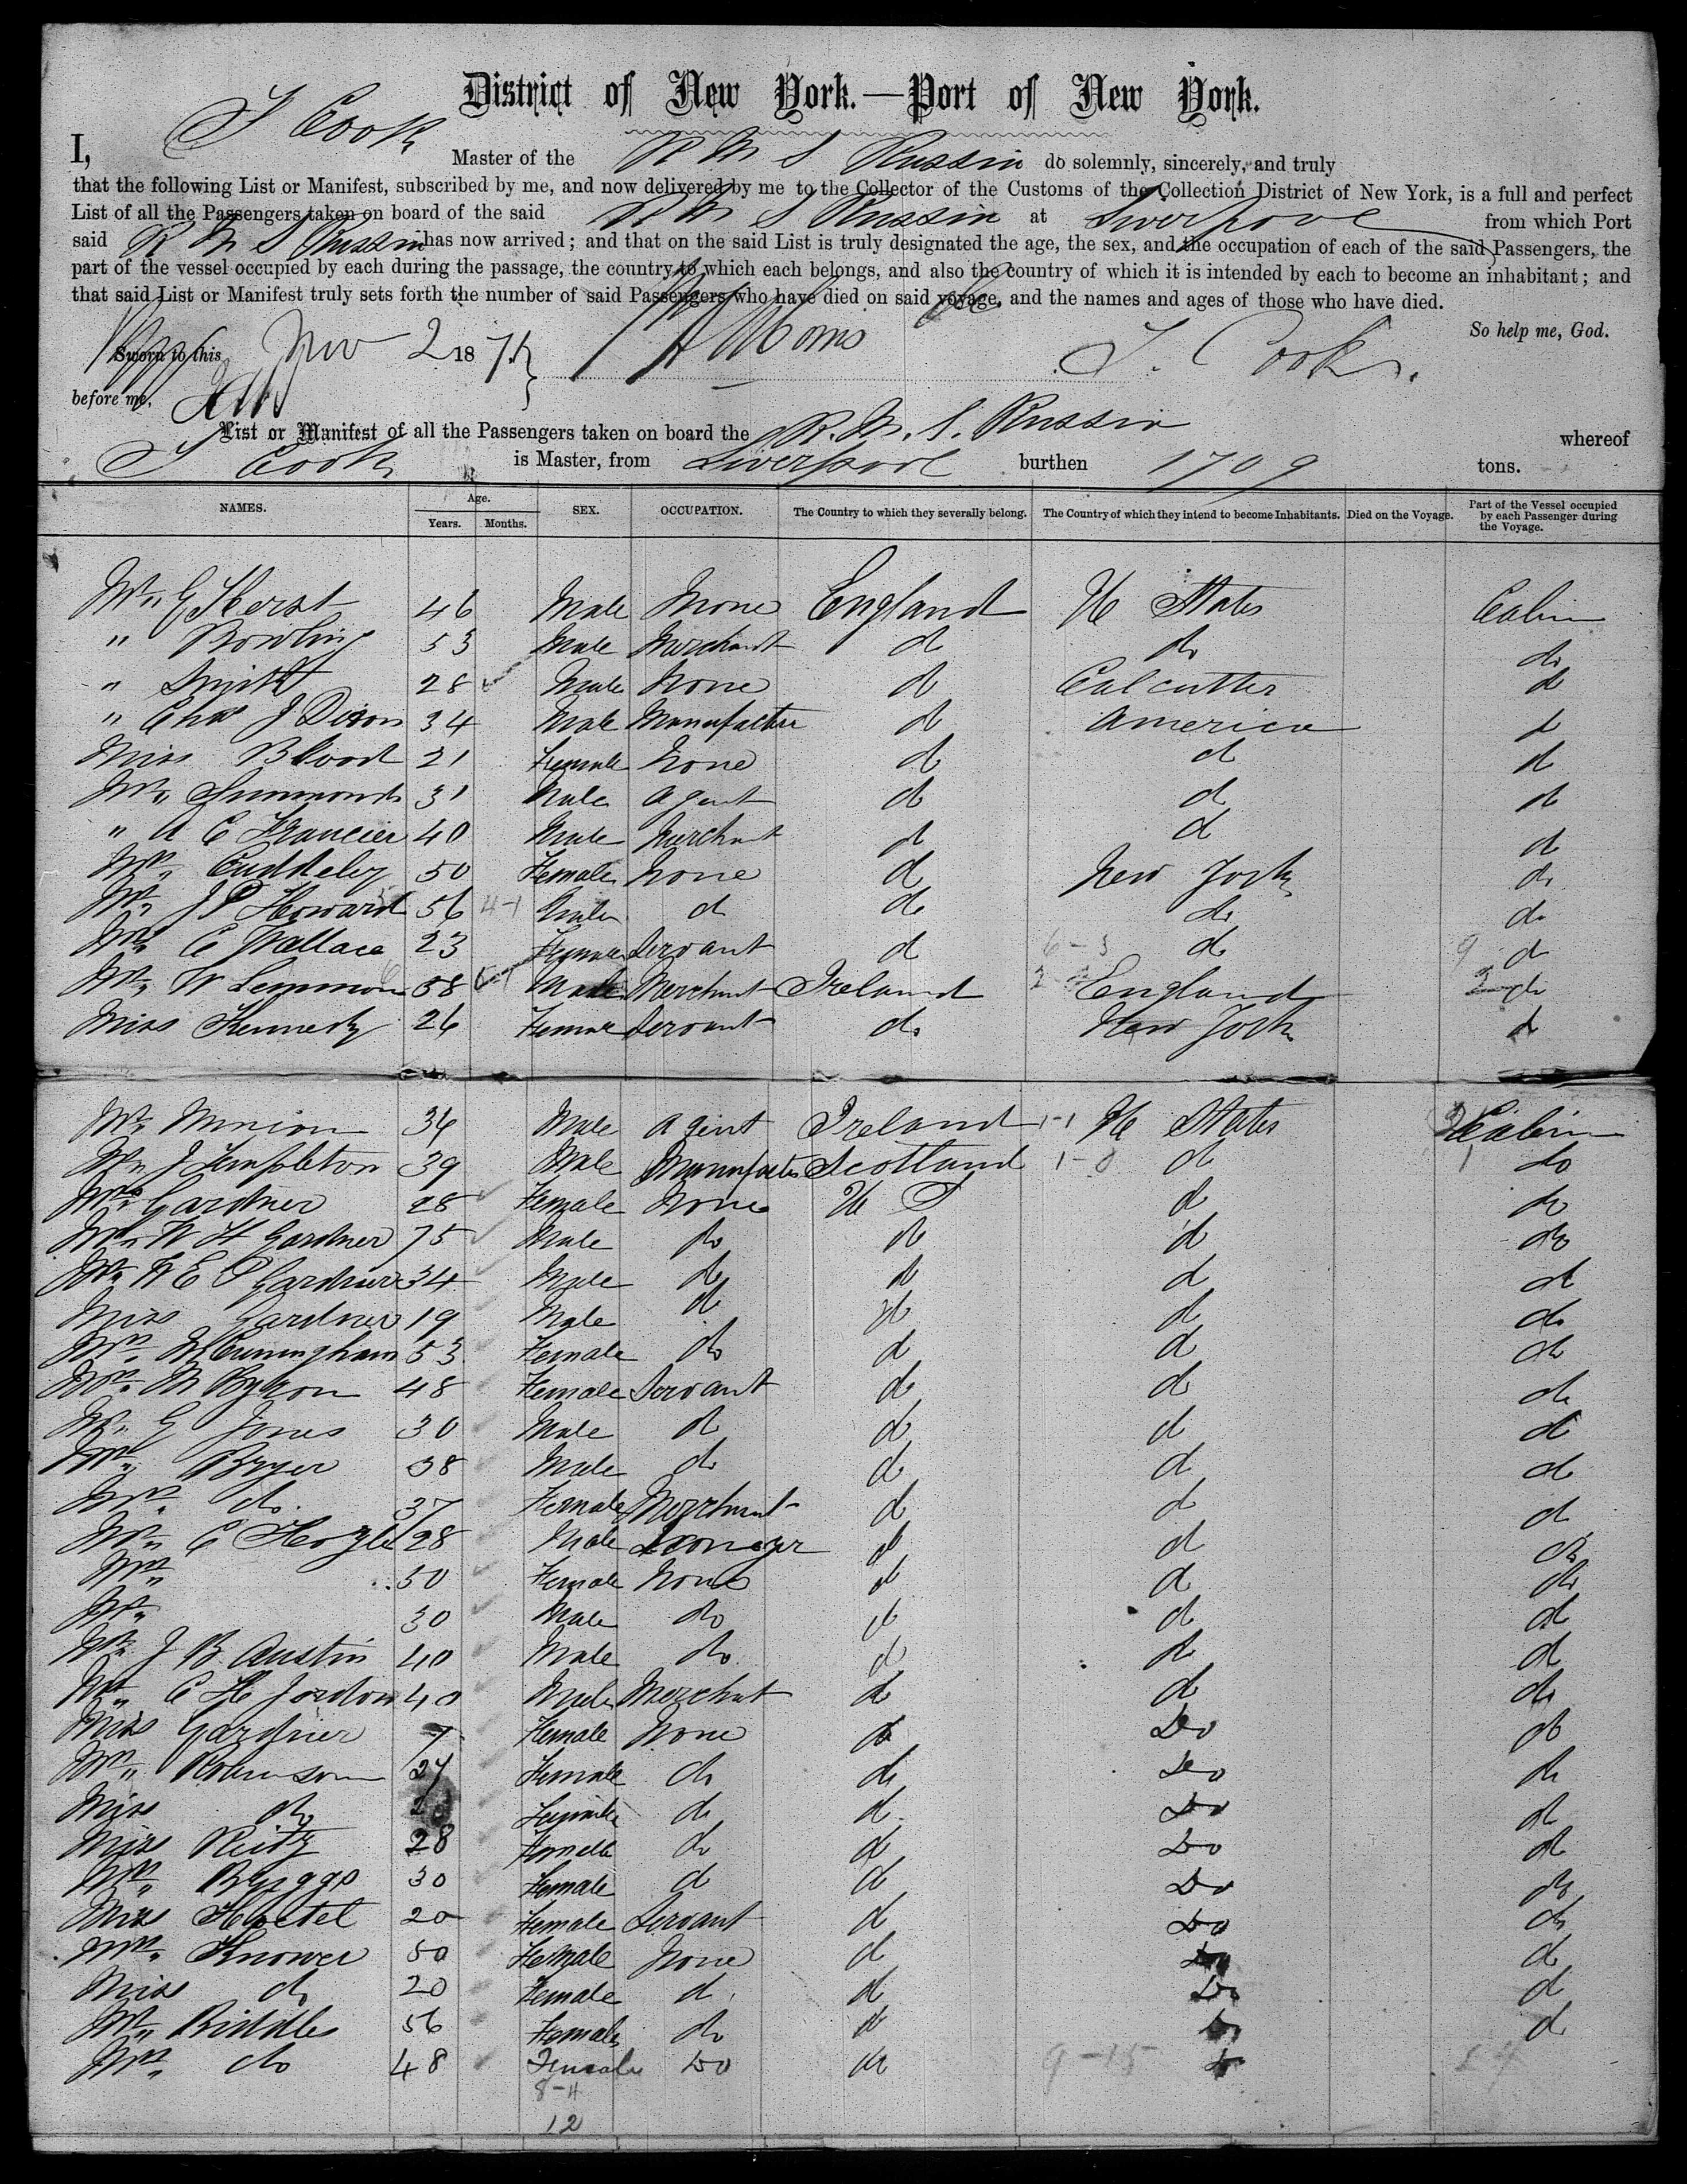 District of New York.—Port of New York.
I, T Cook Master of the R M S Russia do solemnly, sincerely, and truly
that the following List or Manifest, subscribed by me, and now delivered by me to the Collector of the Customs of the Collection District of New York, is a full and perfect
List of all the Passengers taken on board of the said R M S Russia at Liverpool from which Port
said R M S Russia has now arrived; and that on the said List is truly designated the age, the sex, and the occupation of each of the said Passengers, the
part of the vessel occupied by each during the passage, the country to which each belongs, and also the country of which it is intended by each to become an inhabitant; and
that said List or Manifest truly sets forth the number of said Passengers who have died on said voyage, and the names and ages of those who have died.
So help me, God.
Sworn to this Nov 2 187 T. Cook.
before me,
List or Manifest of all the Passengers taken on board the R. M. S. Russia whereof
T Cook is Master, from Liverpool burthen 1709 tons.
NAMES. Age. Years. Months. SEX. OCCUPATION. The Country to which they severally belong. The Country of which they intend to become Inhabitants. Died on the Voyage. Part of the Vessel occupied by each Passenger during the Voyage.
Mr. G Herst 46 Male None England U States Cabin
" Bowling 53 Male Merchant d do do
" Smith 28 Male None d Calcutter d
" Chas J Dixon 34 Male Manufactur d America d
Miss Blood 21 Female None d d d
Mr. Simmonds 31 Male Agent d d d
" A C 40 Male Merchant d d d
Mrs. Cuddeley 50 Female None d New York do
Mr. J P Howard 56 4-1 Male d do do do
Mrs. C Wallace 23 Female Servant d 6-3 d 9 d
Mr. W Lemmon 58 Male Merchant Ireland England do
Miss Kennedy 26 Female Servant do New York d
Mr. Minion 36 Male Agent Ireland 1-1 U States Cabin
Mr. J Templeton 39 Male Manufactur Scotland 1-0 d 1 do
Mrs. Gardner 28 Female None U S d do
Mr. W H Gardner 75 Male do d d do
Mr. W E P Gardner 34 Male do d d d
Miss Gardner 19 Male d d d do
Mrs. M Cuningham 53 Female do d d do
Mrs. M Byron 48 Female Servant d d do
Mr. G Jones 30 Male d d d d
Mr. Bryer 38 Male do d d do
Mrs. do. 37 Female Merchant d d d
Mr. C Hoyle 28 Male d d do
Mrs. 50 Female None d d do
Mr. 30 Male do d d d
Mr. J B Austin 40 Male do d do d
Mr. C H Jordon 40 Male Merchant d d do
Miss Gardner 7 Female None d Do do
Mrs. Robinson 27 Female do do Do do
Miss do Female do d Do do
Miss Reitz 28 Female do d Do d
Mrs. Bryggs 30 Female d d Do do
Miss Hoetel 20 Female Servant d Do do
Mrs. Knower 50 Female None d Do d
Miss do 20 Female d d Do d
Mr. Riddles 56 Female do d Do d
Mrs. do 48 Female Do d 9-15 Do
8-4
12